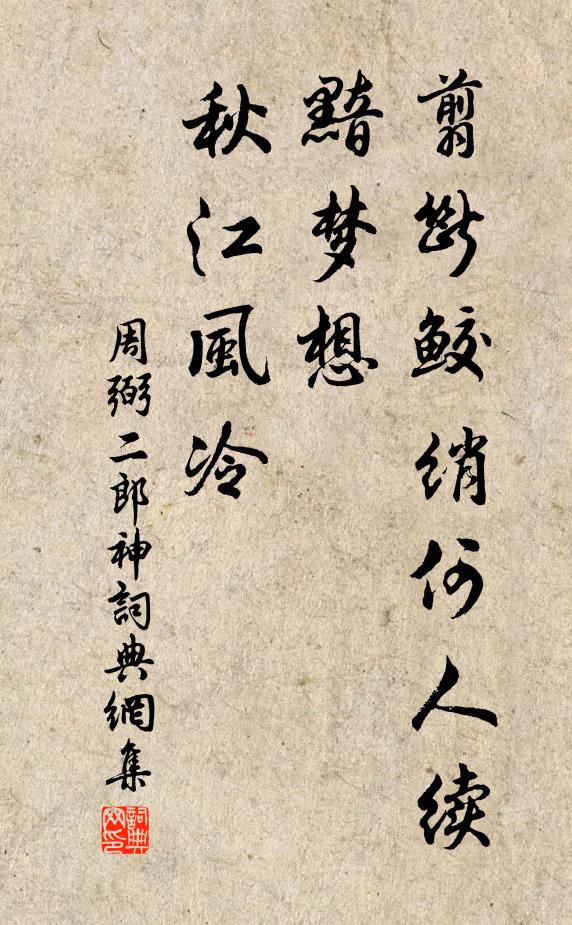 翦断鲛绡何人续
黯梦想
秋江風冷
周弼二郎神詞典網集
詞典网印